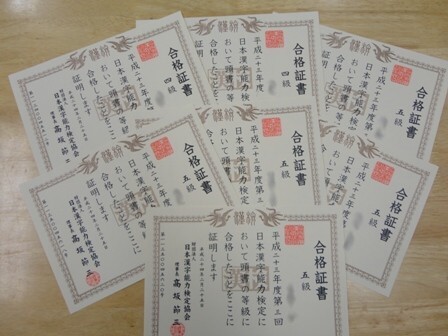 合格証書
四級
平成二十三年度
日本漢字能力検定
おいて頭書の等
合格したこ
証明します
日本漢字能力検定協会
高坂節三
合格証書
四級
平成二十三年度
日本漢字能力検定
おいて頭書の等
合格証書
五級
平成二十三年度第
日本漢字能力検定
おいて頭書
合格証書
五級
平成二十三年度
日本漢字能力検定
おいて頭書の等
合格したことを
証明します
日本漢字能力検定協会
高坂節三
合格証書
五級
平成二十三年度第三
日本漢字能力検定
おいて頭書の等級
合格証書
五級
合格証書
五級
平成二十三年度第三回
日本漢字能力検定に
おいて頭書の等級に
合格したことをここに
証明します
財団法人
日本漢字能力検定協会
理事長 高坂節三